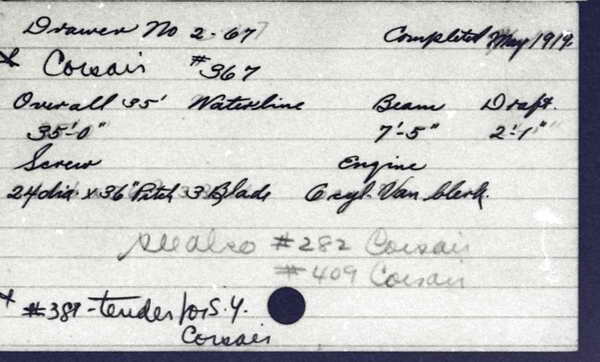 Drawer No 2-67 Completed May 1919.
x Corsair #367
Overall 35' Waterline Beam Draft.
35'-0" 7'-5" 2'-1"
Screw Engine
24 dia x 36" Pitch 3 Blade 6 cyl. Van blerk.
see also #282 Corsair
#409 Corsair
x #389 - tender for S.Y.
Corsair